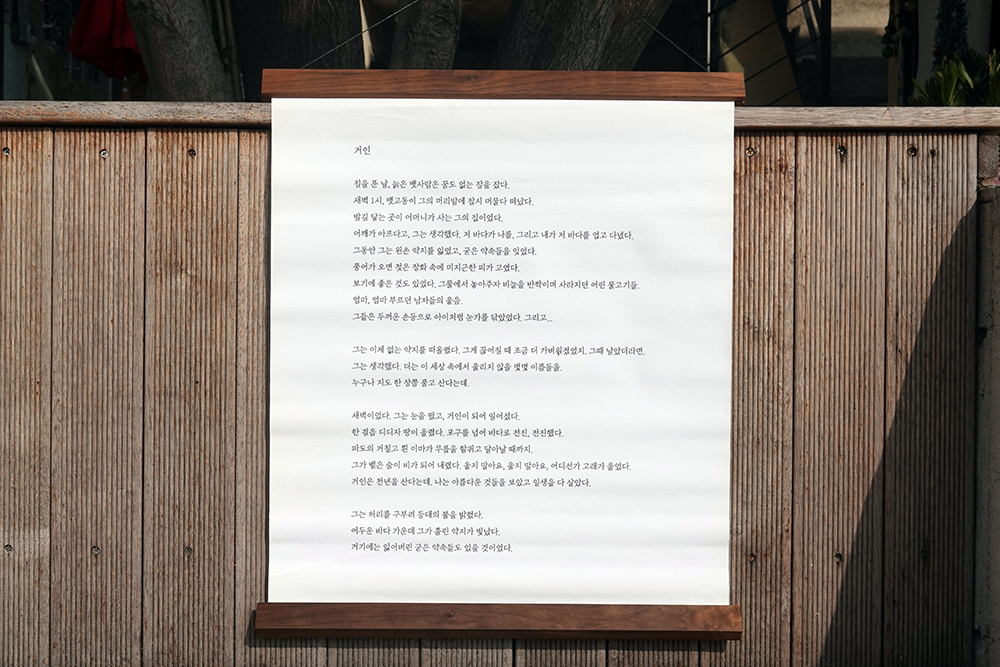 거인
짐을 푼 날, 늙은 뱃사람은 꿈도 없는 잠을 잤다.
새벽 1시, 뱃고동이 그의 머리맡에 잠시 머물다 떠났다.
발길 닿는 곳이 어머니가 사는 그의 집이었다.
어깨가 아프다고, 그는 생각했다. 저 바다가 나를, 그리고 내가 저 바다를 업고 다녔다.
그동안 그는 왼손 약지를 잃었고, 굳은 약속들을 잊었다.
풍어가 오면 젖은 장화 속에 미지근한 피가 고였다.
보기에 좋은 것도 있었다. 그물에서 놓아주자 비늘을 반짝이며 사라지던 어린 물고기들.
엄마, 엄마 부르던 남자들의 울음.
그들은 두꺼운 손등으로 아이처럼 눈가를 닦았었다. 그리고...
그는 이제 없는 약지를 떠올렸다. 그게 끊어질 때 조금 더 가벼워졌었지. 그때 날았더라면.
그는 생각했다. 더는 이 세상 속에서 울리지 않을 몇몇 이름들을.
누구나 지도 한 장쯤 품고 산다는데.
새벽이었다. 그는 눈을 떴고, 거인이 되어 일어섰다.
한 걸음 디디자 땅이 울렸다. 포구를 넘어 바다로 전진, 전진했다.
파도의 거칠고 흰 이마가 무릎을 할퀴고 달아날 때까지.
그가 뱉은 숨이 비가 되어 내렸다. 울지 말아요, 울지 말아요, 어디선가 고래가 울었다.
거인은 천년을 산다는데. 나는 아름다운 것들을 보았고 일생을 다 살았다.
그는 허리를 구부려 등대의 불을 밝혔다.
어두운 바다 가운데 그가 흘린 약지가 빛났다.
거기에는 잃어버린 굳은 약속들도 있을 것이었다.